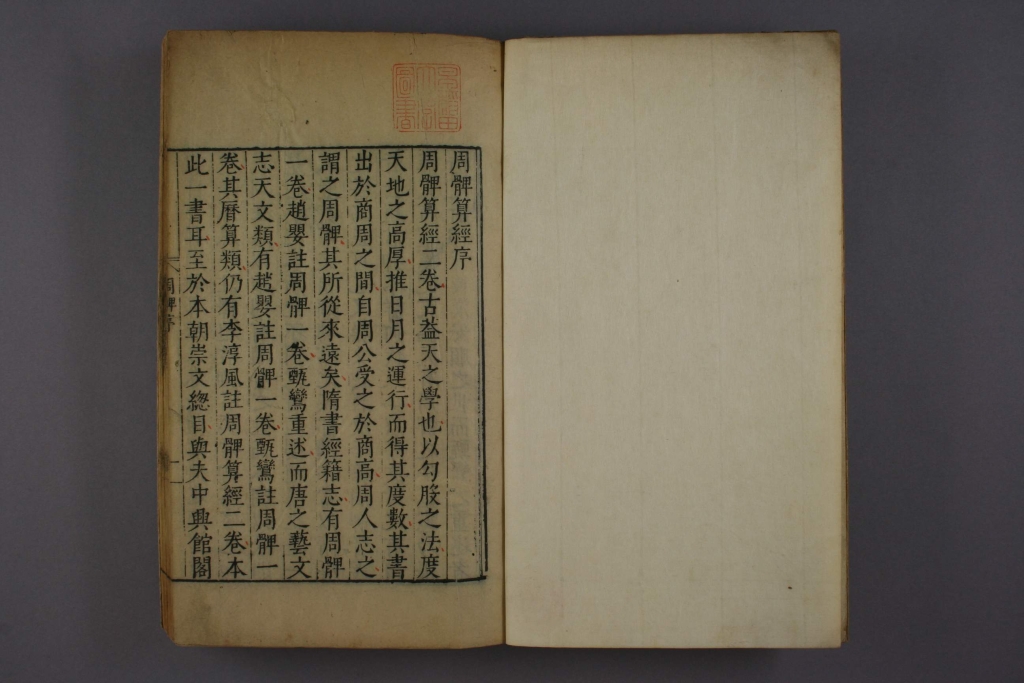 周髀算經序
周髀算經二卷古葢天之學也以勾股之法度
天地之高厚推日月之運行而得其度數其書
出於商周之間自周公受之於商高周人志之
謂之周髀其所從來遠矣隋書經籍志有周髀
一卷趙嬰註周髀一卷甄鸞重述而唐之藝文
志天文類有趙嬰註周髀一卷甄鸞註周髀一
卷其曆算類仍有李淳風註周髀算經二卷本
此一書耳至於本朝崇文總目與夫中興館閣
周髀序
一